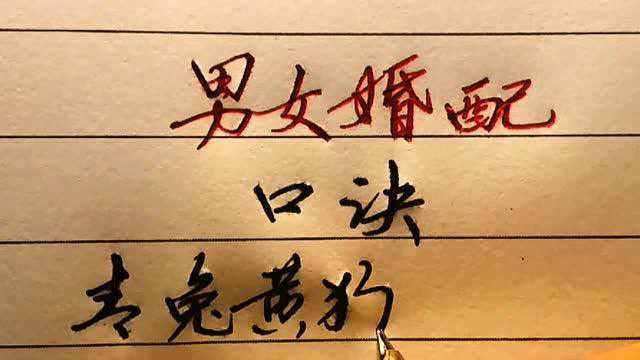 男女婚配
口诀
青兔黄